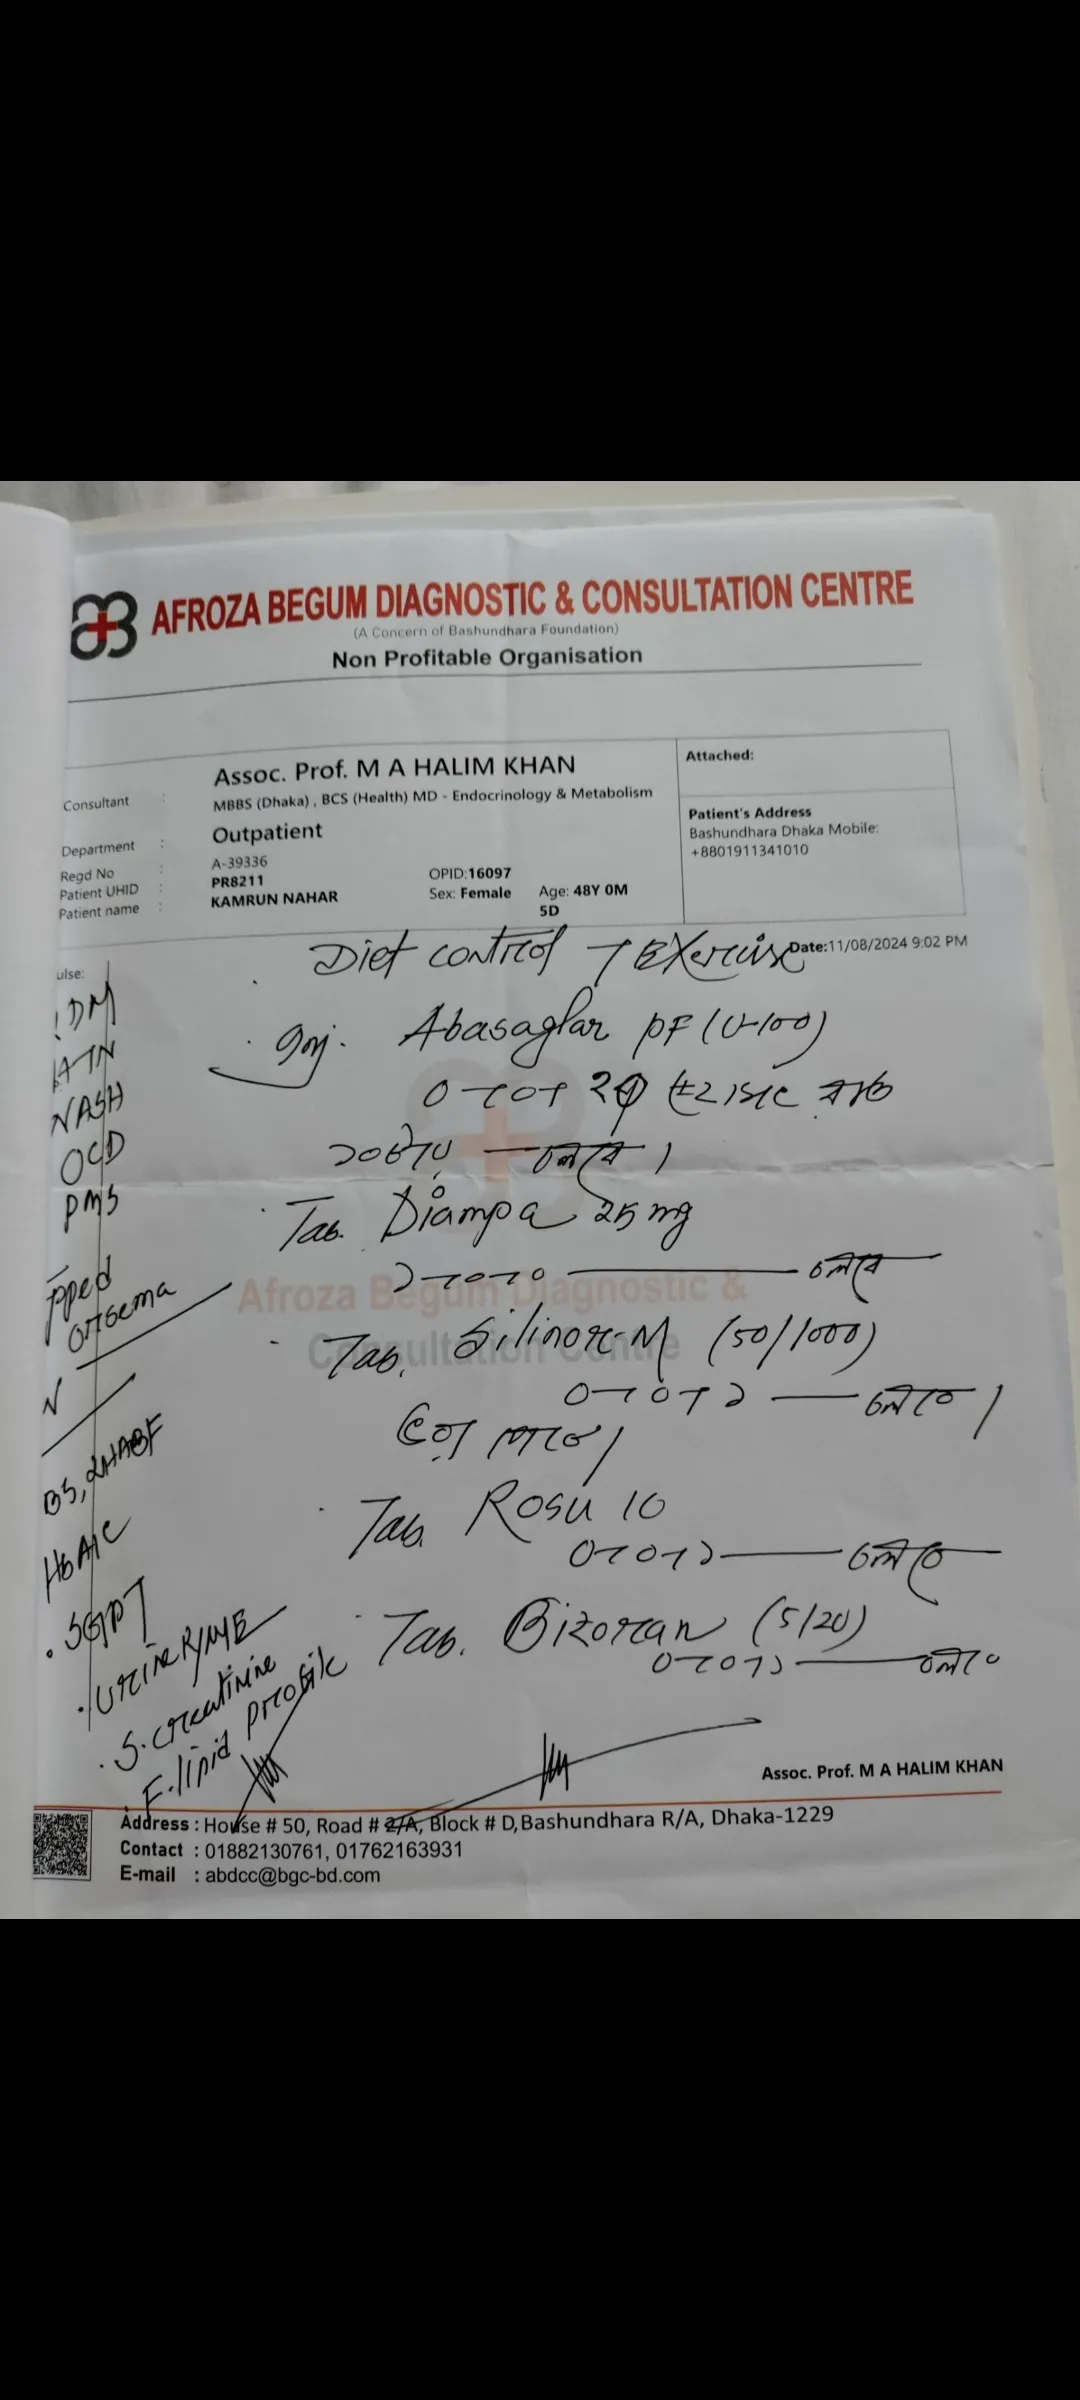 AFROZA BEGUM DIAGNOSTIC & CONSULTATION CENTRE
(A Concern of Bashundhara Foundation)
Non Profitable Organisation
Consultant : Assoc. Prof. M A HALIM KHAN
MBBS (Dhaka) , BCS (Health) MD - Endocrinology & Metabolism
Department : Outpatient
Regd No : A-39336
Patient UHID : PR8211 OPID:16097
Patient name : KAMRUN NAHAR Sex: Female Age: 48Y 0M 5D
Attached:
Patient's Address
Bashundhara Dhaka Mobile:
+8801911341010
Date:11/08/2024 9:02 PM
ulse:
DM
HTN
NASH
OCD
PMS
N
HbA1C
SGPT
Urine R/M/E
S. creatinine
F. lipid profile
Diet control Exercise
Inj. Abasaglar PF (U-100)
চলবে ।
Tab. Diampa 25 mg
১-০-০ চলবে
Tab. Silinor-M (50/1000)
০-০-১ চলবে ।
Tab. Rosu 10
০-০-১ চলবে
Tab. Bizoran (5/20)
০-০-১ চলবে
Afroza Begum Diagnostic &
Consultation Centre
Assoc. Prof. M A HALIM KHAN
Address : House # 50, Road # 2/A, Block # D, Bashundhara R/A, Dhaka-1229
Contact : 01882130761, 01762163931
E-mail : abdcc@bgc-bd.com